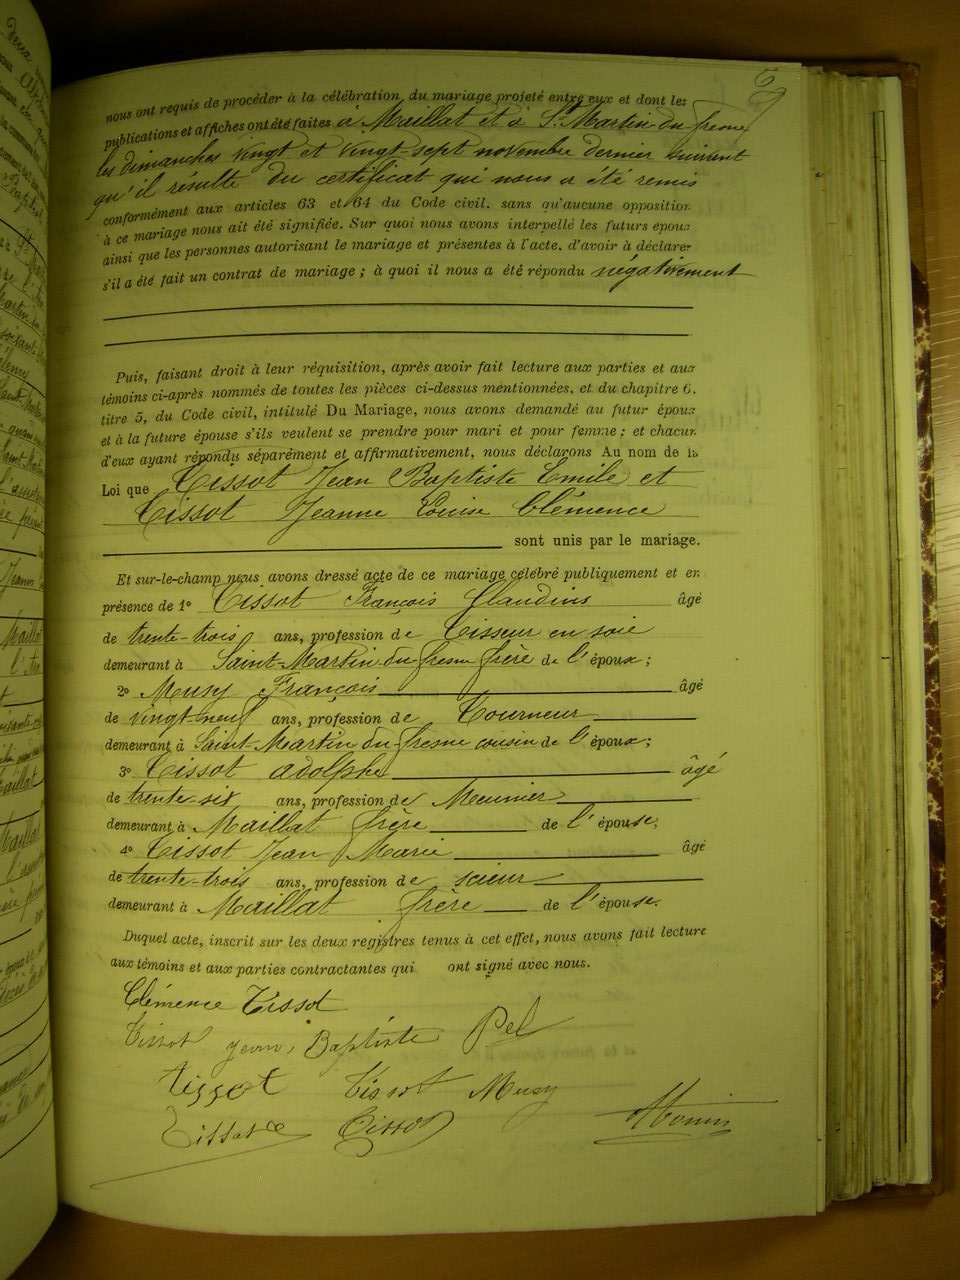 nous ont requis de procéder à la célébration du mariage projeté entre eux et dont les
publications et affiches ont été faites à Maillat et à St Martin-du-fresne
les dimanches vingt et vingt-sept novembre dernier suivant
qu'il résulte du certificat qui nous a été remis
conformément aux articles 63 et 64 du Code civil. sans qu'aucune opposition
à ce mariage nous ait été signifiée. Sur quoi nous avons interpellé les futurs époux
ainsi que les personnes autorisant le mariage et présentes à l'acte, d'avoir à déclarer
s'il a été fait un contrat de mariage ; à quoi il nous a été répondu négativement
Puis, faisant droit à leur réquisition, après avoir fait lecture aux parties et aux
témoins ci-après nommés de toutes les pièces ci-dessus mentionnées, et du chapitre 6.
titre 5, du Code civil, intitulé Du Mariage, nous avons demandé au futur époux
et à la future épouse s'ils veulent se prendre pour mari et pour femme ; et chacun
d'eux ayant répondu séparément et affirmativement, nous déclarons Au nom de la
Loi que Tissot Jean Baptiste Emile et
Tissot Jeanne Louise Clémence
sont unis par le mariage.
Et sur-le-champ nous avons dressé acte de ce mariage célébré publiquement et en
présence de 1° Tissot François Claudius âgé
de trente-trois ans, profession de Tisseur en soie
demeurant à Saint-Martin du-fresne frère de l'époux ;
2° Musy François âgé
de vingt-neuf ans, profession de Tourneur
demeurant à Saint-Martin du-fresne cousin de l'époux ;
3° Tissot adolphe âgé
de trente-six ans, profession de Meunier
demeurant à Maillat frère de l'épouse,
4° Tissot Jean Marie âgé
de trente-trois ans, profession de scieur
demeurant à Maillat frère de l'épouse.
Duquel acte, inscrit sur les deux registres tenus à cet effet, nous avons fait lecture
aux témoins et aux parties contractantes qui ont signé avec nous.
Clémence Tissot
Tissot Jean Baptiste Pel
tissot Tissot Musy
Tissot Tissot